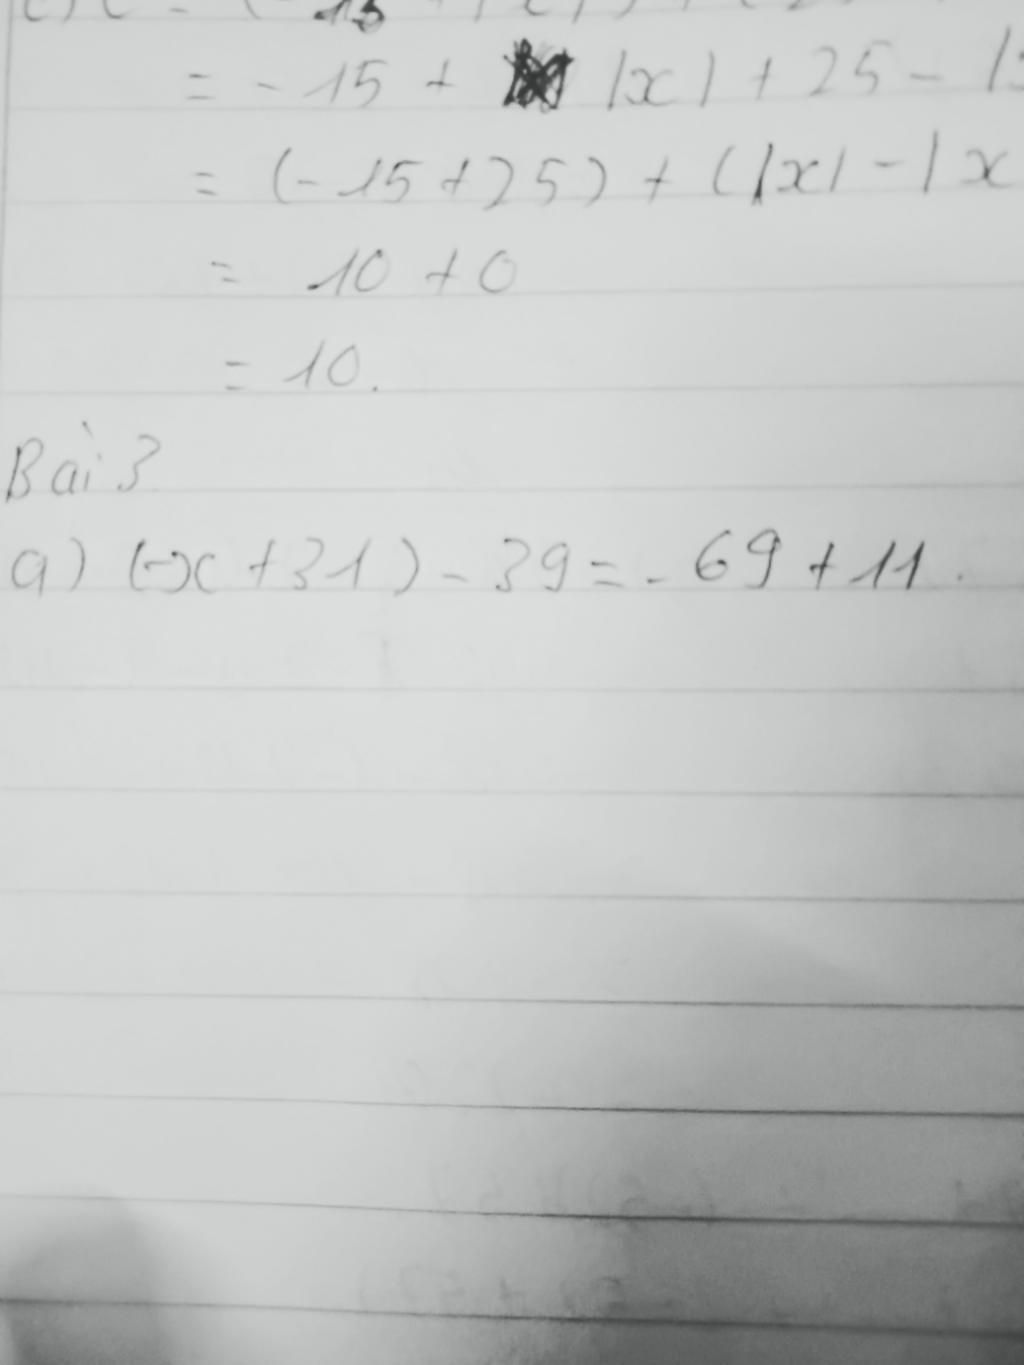 = - 15 + |x| + 25 -
= (- 15 + 25) + (|x| - |x
= 10 + 0
= 10.
Bài 3
a) (-x + 31) - 39 = - 69 + 11.